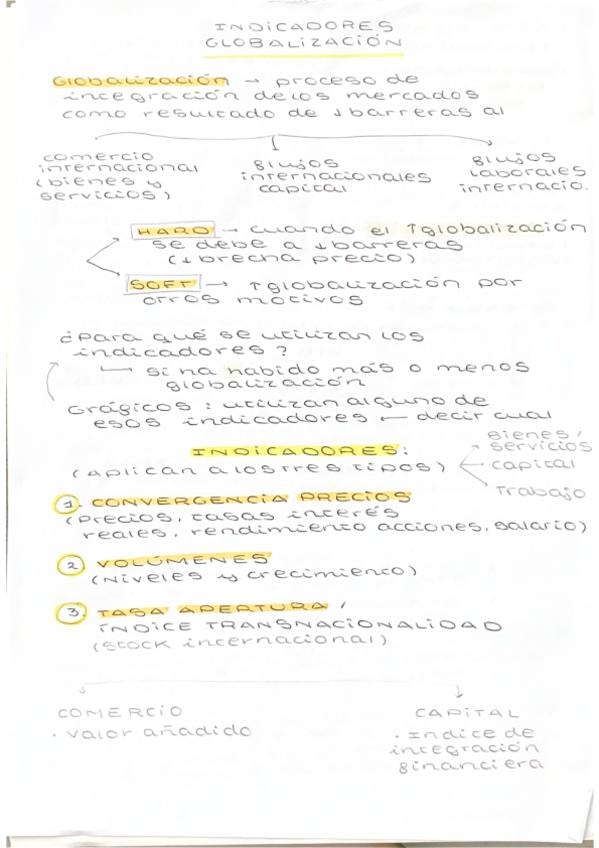 INDICADORES
GLOBALIZACIÓN
Globalización → proceso de
integración de los mercados
como resultado de ↓ barreras al
comercio
internacional
(bienes y
servicios)
flujos
internacionales
capital
flujos
laborales
internacio.
HARD → cuando el ↑globalización
se debe a ↓barreras
(↓brecha precio)
SOFT → ↑globalización por
otros motivos
¿Para qué se utilizan los
indicadores?
si ha habido más o menos
globalización
Gráficos: utilizan alguno de
esos indicadores ← decir cual
INDICADORES:
(Aplican a los tres tipos)
Bienes /
servicios
capital
Trabajo
1. CONVERGENCIA PRECIOS
(Precios, tasas interés
reales, rendimiento acciones, salario)
2. VOLÚMENES
(Niveles y crecimiento)
3. TASA APERTURA /
ÍNDICE TRANSNACIONALIDAD
(stock internacional)
COMERCIO
. Valor añadido
CAPITAL
. Indice de
integración
financiera